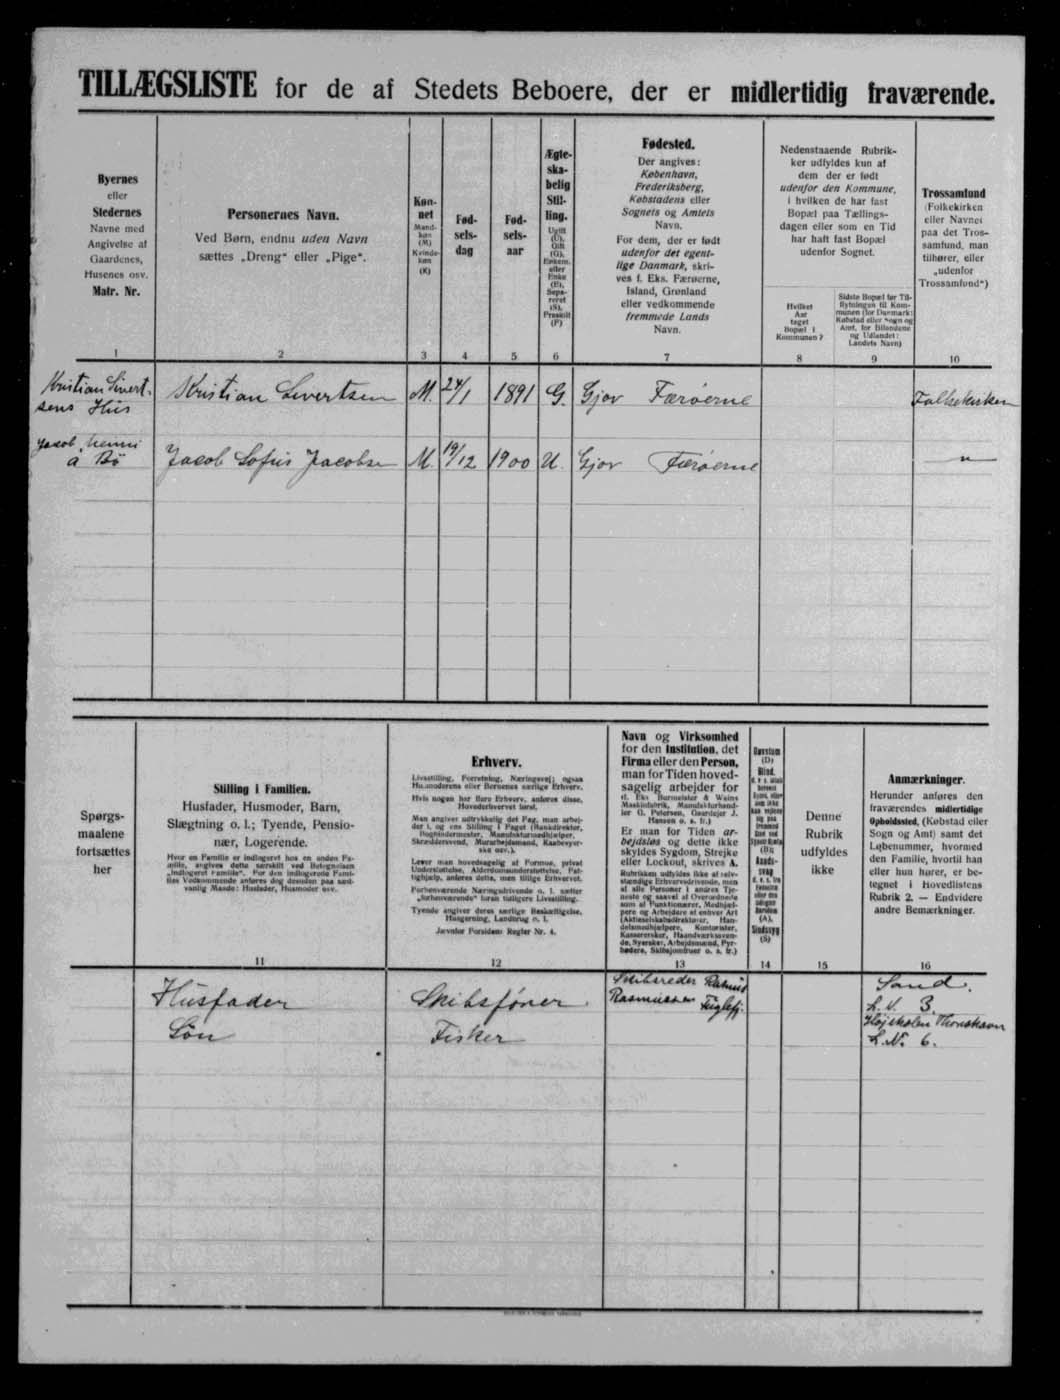 TILLÆGSLISTE for de af Stedets Beboere, der er midlertidig fraværende.
Byernes
eller
Stedernes
Navne med
Angivelse af
Gaardenes,
Husenes osv.
Matr. Nr.
Personernes Navn.
Ved Børn, endnu uden Navn
sættes „Dreng“ eller „Pige“.
Køn-
net
Mand-
køn
(M)
Kvinde-
køn
(K)
Fød-
sels-
dag
Fød-
sels-
aar
Ægte-
ska-
belig
Stil-
ling.
Ugift
(U),
Gift
(G),
Enkem.
eller
Enke
(E),
Sepa-
reret
(S),
Fraskilt
(F)
Fødested.
Der angives:
København,
Frederiksberg,
Købstadens eller
Sognets og Amtets
Navn.
For dem, der er født
udenfor det egent-
lige Danmark, skri-
ves f. Eks. Færøerne,
Island, Grønland
eller vedkommende
fremmede Lands
Navn.
Nedenstaaende Rubrik-
ker udfyldes kun af
dem der er født
udenfor den Kommune,
i hvilken de har fast
Bopæl paa Tællings-
dagen eller som en Tid
har haft fast Bopæl
udenfor Sognet.
Hvilket
Aar
taget
Bopæl i
Kommunen?
Sidste Bopæl før Til-
flytningen til Kom-
munen (for Danmark:
Købstad eller Sogn og
Amt, for Bilandene
og Udlandet:
Landets Navn)
Trossamfund
(Folkekirken
eller Navnet
paa det Tros-
samfund, man
tilhører, eller
„udenfor
Trossamfund“)
1 2 3 4 5 6 7 8 9 10
Kristian Sivert-
sens Hus
Kristian Sivertsen M. 24/1 1891 G. Gjov Færøerne Folkekirken
Jacob
á Bö
Jacob Sofus Jacobsen M. 19/12 1900 U. Gjov Færøerne "
Spørgs-
maalene
fortsættes
her
Stilling i Familien.
Husfader, Husmoder, Barn,
Slægtning o. l.; Tyende, Pensio-
nær, Logerende.
Hvor en Familie er indlogeret hos en anden Fa-
milie, angives dette særskilt ved Betegnelsen
„indlogeret Familie“. For den indlogerede Fami-
lies Vedkommende anføres dog desuden paa sæd-
vanlig Maade: Husfader, Husmoder osv.
Erhverv.
Livsstilling, Forretning, Næringsvej; ogsaa
Husmoderens eller Børnenes særlige Erhverv.
Hvis nogen har flere Erhverv, anføres disse,
Hovederhvervet først.
Man angiver udtrykkelig det Fag, man arbej-
der i, og ens Stilling i Faget (Bankdirektør,
Bogbindermester, Manufakturmedhjælper,
Skræddersvend, Murarbejdsmand, Kaabesyer-
ske osv.).
Lever man hovedsagelig af Formue, privat
Understøttelse, Alderdomsunderstøttelse, Fat-
tighjælp, anføres dette, men tillige Erhvervet.
Forhenværende Næringsdrivende o. l. sætter
„forhenværende“ foran tidligere Livsstilling.
Tyende angiver deres særlige Beskæftigelse,
Husgerning, Landbrug o. l.
Jævnfør Forsidens Regler Nr. 4.
Navn og Virksomhed
for den Institution, det
Firma eller den Person,
man for Tiden hoved-
sagelig arbejder for
(f. Eks. Burmeister & Wains
Maskinfabrik, Manufakturhand-
ler G. Petersen, Gaardejer J.
Hansen o. s. fr.)
Er man for Tiden ar-
bejdsløs og dette ikke
skyldes Sygdom, Strejke
eller Lockout, skrives A.
Rubrikken udfyldes ikke af selv-
stændige Erhvervsdrivende, men
af alle Personer i andres Tje-
neste og saavel af Overordnede
som af Funktionærer, Medhjæl-
pere og Arbejdere af enhver Art
(Aktieselskabsdirektører, Han-
delsmedhjælpere, Kontorister,
Kassererskær, Haandværkssven-
de, Syersker, Arbejdsmænd, Fyr-
bødere, Skibsjomfruer o. s. fr.)
Døvstum
(D)
Blind,
(B)
Aands-
svag,
(A),
Sindssyg
(S)
Denne
Rubrik
udfyldes
ikke
Anmærkninger.
Herunder anføres den
fraværendes midlertidige
Opholdssted, (Købstad eller
Sogn og Amt) samt det
Løbenummer, hvormed
den Familie, hvortil han
eller hun hører, er be-
tegnet i Hovedlistens
Rubrik 2. — Endvidere
andre Bemærkninger.
11 12 13 14 15 16
Husfader Skibsfører Skibsreder
Rasmussen Fuglefj. Sand.
L. N. 3.
Søn Fisker Højskolen Thorshavn
L. N. 6.